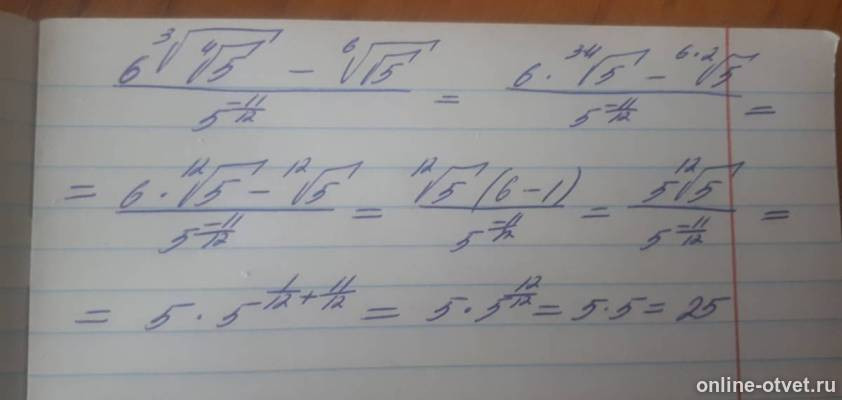 (6∛(⁴√5) − ⁶√(√5)) / 5^(−11/12) = (6·³·⁴√5 − ⁶·²√5) / 5^(−11/12) =
= (6·¹²√5 − ¹²√5) / 5^(−11/12) = ¹²√5 (6−1) / 5^(−11/12) = 5 ¹²√5 / 5^(−11/12) =
= 5·5^(1/12 + 11/12) = 5·5^(12/12) = 5·5 = 25
online-otvet.ru